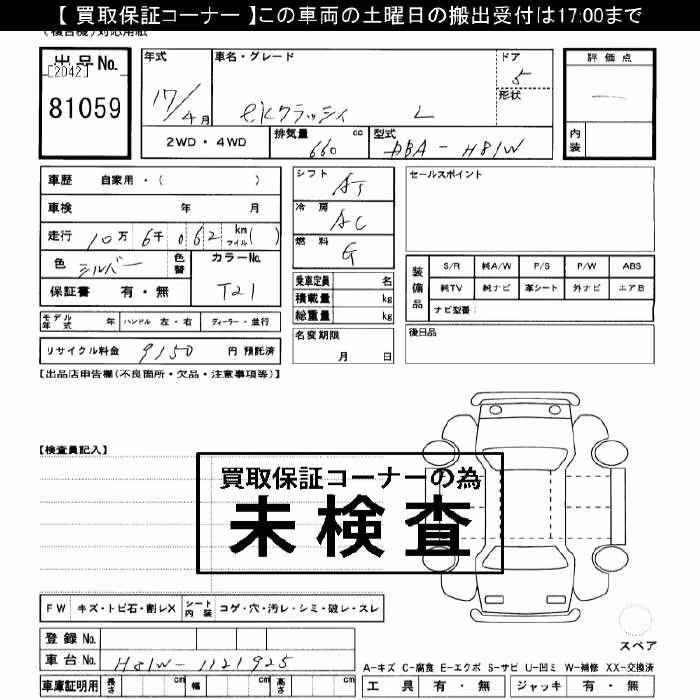 【 買取保証コーナー 】この車両の土曜日の搬出受付は17:00まで
(複合機)対応用紙
出品No.
[2042]
81059
年式
17/4月
車名・グレード
ekクラッシィ L
ドア
5
形状
評価点
内装
2WD・4WD
排気量 660 cc
型式 DBA-H81W
車歴 自家用・( )
車検 年 月
走行 10万 6千 0 6 2 km マイル( )
色 シルバー
色替
カラーNo.
T21
保証書 有・無
モデル年式 年 ハンドル 左・右 ディーラー・並行
リサイクル料金 9150 円 預託済
シフト AT
冷房 AC
燃料 G
乗車定員 名
積載量 kg
総重量 kg
名変期限
月 日
セールスポイント
装備品
S/R 純A/W P/S P/W ABS
純TV 純ナビ 革シート 外ナビ エアB
ナビ型番:
後日品
【出品店申告欄(不良箇所・欠品・注意事項等)】
【検査員記入】
買取保証コーナーの為
未検査
FW キズ・トビ石・割レX シート内装 コゲ・穴・汚レ・シミ・破レ・スレ
登録No.
車台No. H81W-1121925
車庫証明用 長さ cm 幅 cm 高さ cm
スペア
A-キズ C-腐食 E-エクボ S-サビ U-凹ミ W-補修 XX-交換済
工具 有・無 ジャッキ 有・無